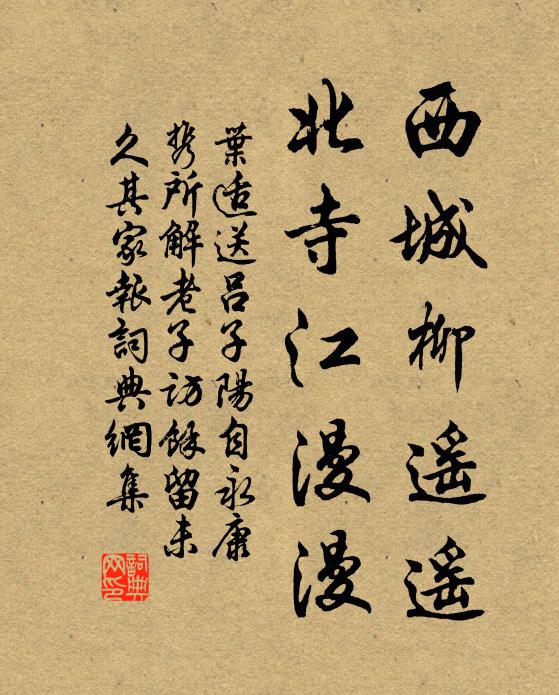 西城柳遥遥
北寺江漫漫
葉适送呂子陽自永康
携所解老子訪餘留未
久其家報詞典網集
詞典網印